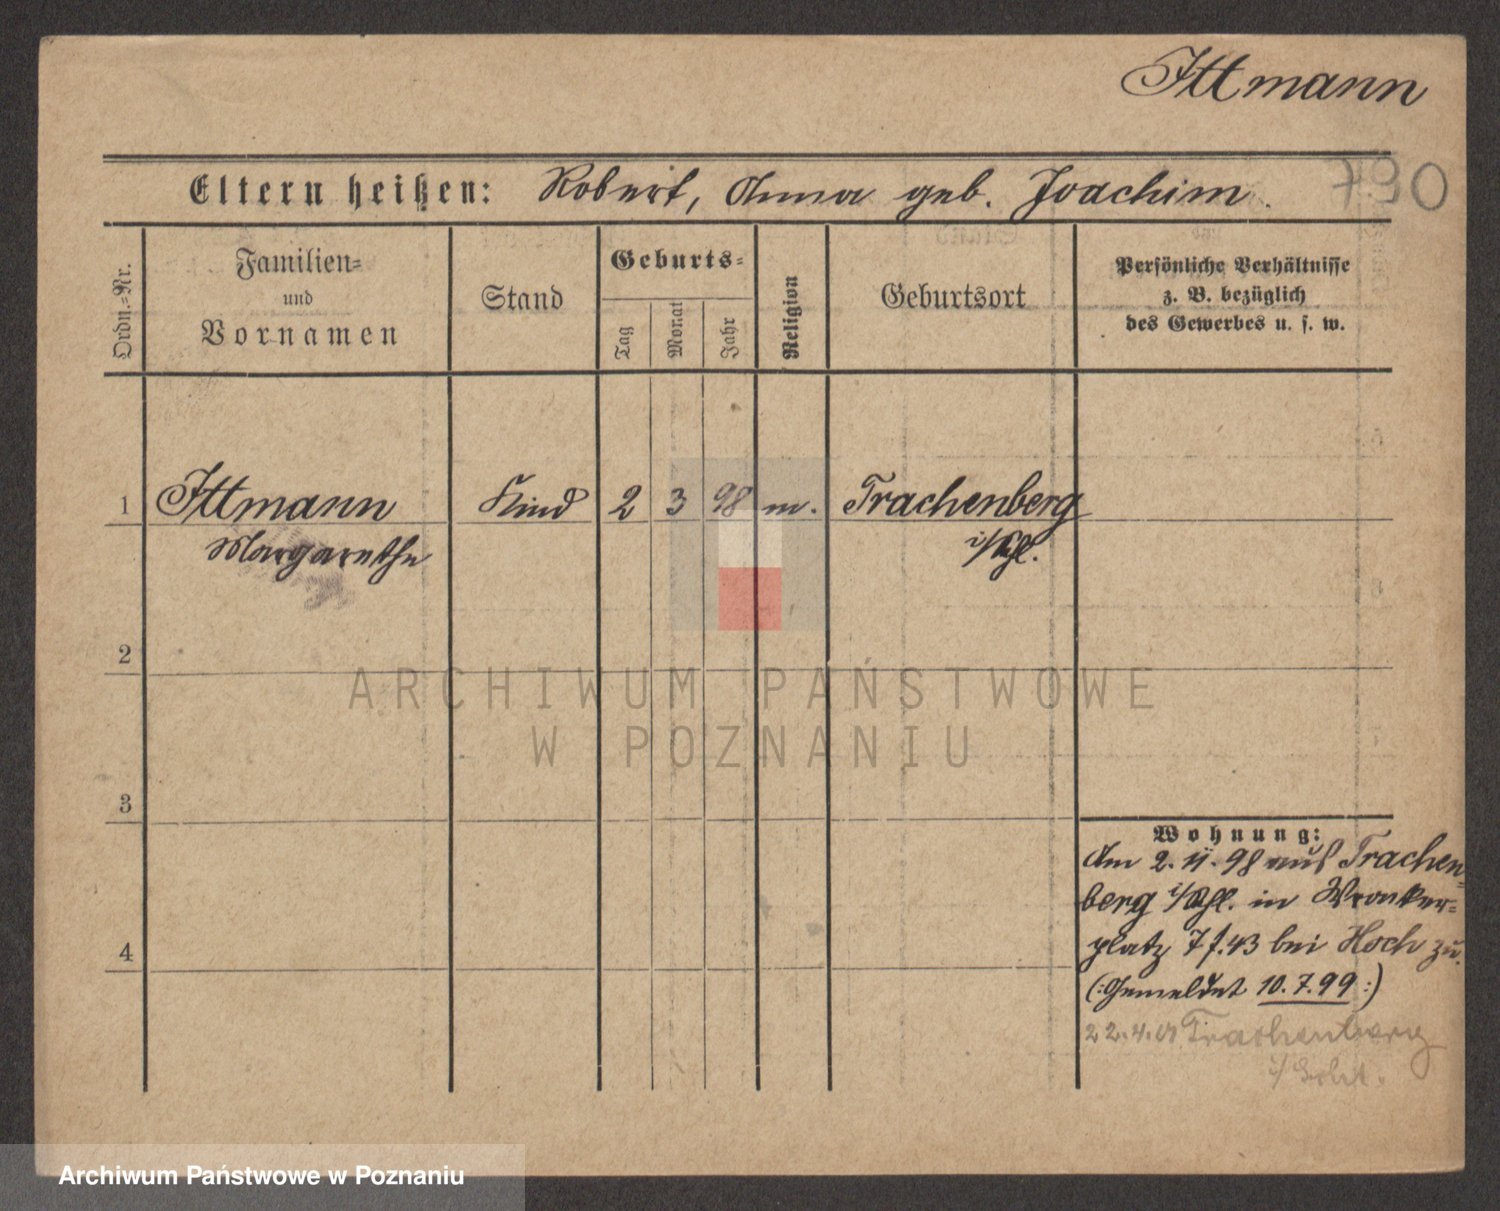 Ittmann
Eltern heißen: Robert, Anna geb. Joachim.
790
Ordn.-Nr.
Familien-
und
Vornamen
Stand
Geburts-
Tag
Monat
Jahr
Religion
Geburtsort
Persönliche Verhältnisse
z. B. bezüglich
des Gewerbes u. s. w.
1 Ittmann Kind 2 3 98 m. Trachenberg
Margarethe i/Schl.
2
3
4
Wohnung:
Am 2.11.98 aus Trachen-
berg i/Schl. in Wronker-
platz 7 f. 43 bei Hoch zu.
(: Gemeldet 10.7.99 :)
22.4. Trachenberg
ARCHIWUM PAŃSTWOWE
W POZNANIU
Archiwum Państwowe w Poznaniu